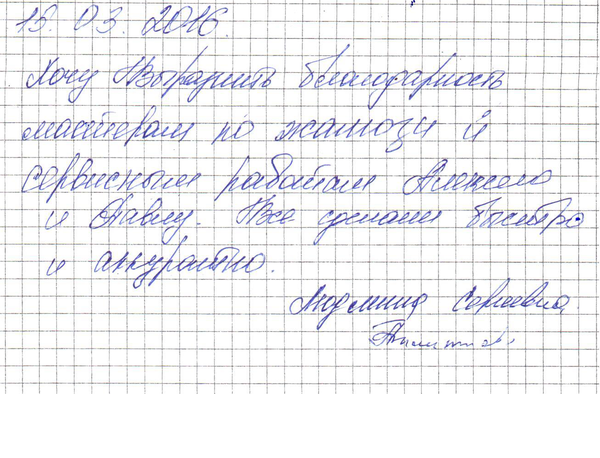 15.03.2016.
Хочу Выразить благодарность
мастерам по жалюзи и
сервисным работам Алексею
и Павлу. Все сделали быстро
и аккуратно.
Людмила Сергеевна